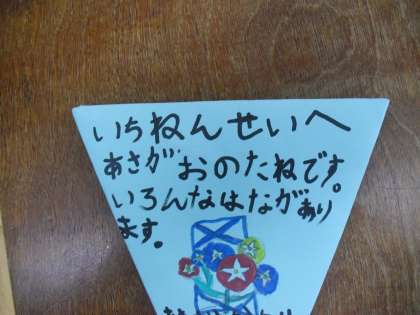 いちねんせいへ
あさがおのたねです。
いろんなはながあり
ます。